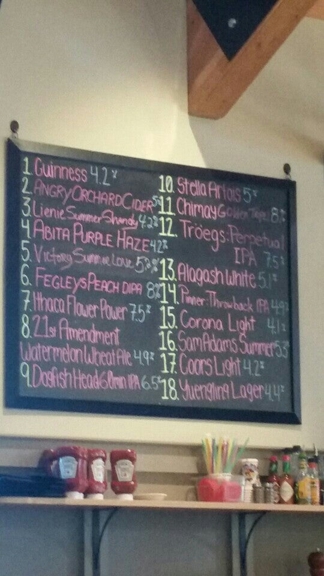 1. Guinness 4.2%
2. ANGRY ORCHARD CIDER 5%
3. Lienie Summer Shandy 4.2%
4. ABITA PURPLE HAZE 4.2%
5. Victory Summer Love 5%
6. FEGLEYS PEACH DIPA 8%
7. Ithaca Flower Power 7.5%
8. 21st Amendment
Watermelon Wheat Ale 4.9%
9. Dogfish Head 60min IPA 6.5%
10. Stella Artois 5%
11. Chimay 8%
12. Tröegs: Perpetual
IPA 7.5%
13. Allagash White 5.1%
14. Pinner Throwback IPA 4.9%
15. Corona Light 4.1%
16. Sam Adams Summer 5.3%
17. Coors Light 4.2%
18. Yuengling Lager 4.4%